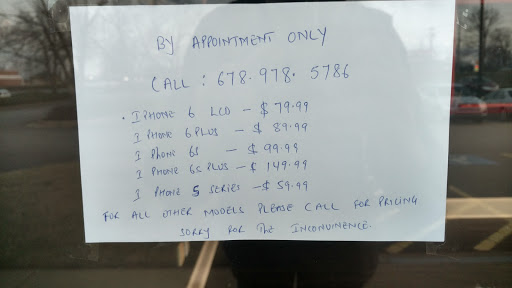 BY APPOINTMENT ONLY
CALL : 678.978. 5786
• IPHONE 6 LCD - $79.99
I PHONE 6 PLUS - $ 89.99
I PHONE 6S - $ 99.99
I PHONE 6S PLUS - $ 149.99
I PHONE 5 SERIES - $ 59.99
FOR ALL OTHER MODELS PLEASE CALL FOR PRICING
SORRY FOR THE INCONVINENCE.